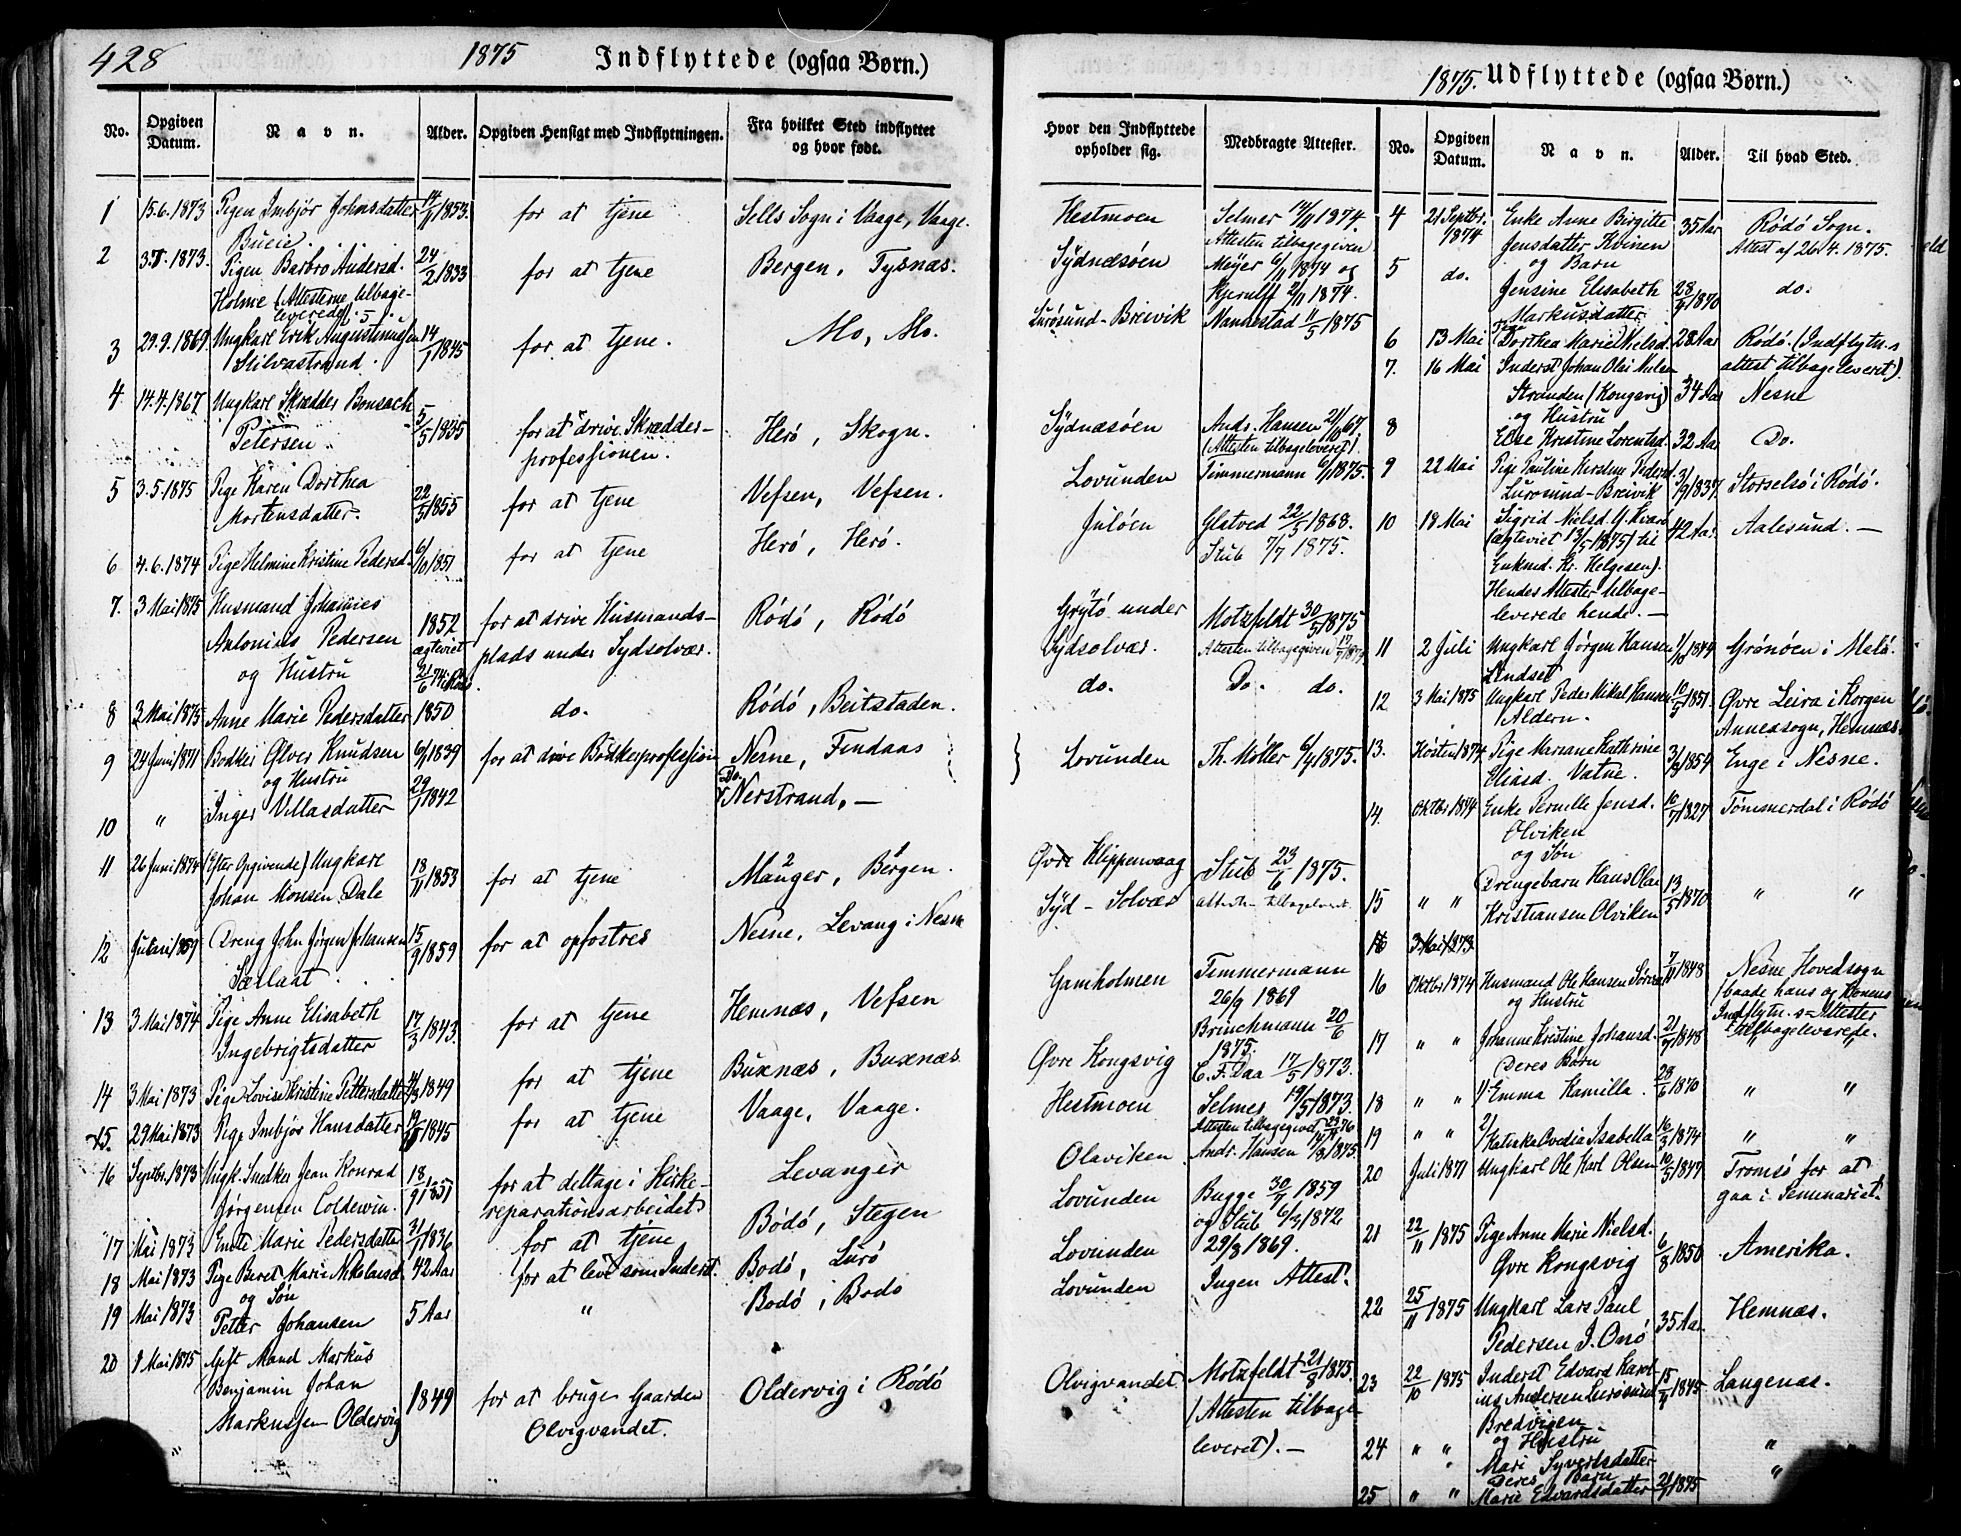 428
1875 Indflyttede (ogsaa Børn.)
No.
Opgiven Datum.
Navn.
Alder.
Opgiven Hensigt med Indflytningen.
Fra hvilket Sted indflyttet og hvor født.
1 15.6.1873 Pigen Imbjør Johnsdatter 1853. for at tjene Sells Sogn i Vaage, Vaage.
2 1873. Pigen Barbro Andersd. 24/2 1833 for at tjene Bergen, Tysnæs.
Holme (Attesterne tilbage-
leverede).
3 29.9.1869 Ungkarl Erik Augustinussen 14/1 1845 for at tjene. Mo, Mo.
Stilvastrand.
4 14.4.1867 Ungkarl Skrædder Bonsach 5/5 1835 for at drive Skrædder- Herö, Skogn.
Petersen. professionen.
5 3.5.1875 Pige Karen Dorthea 22/5 1855 for at tjene Vefsen, Vefsen.
Mortensdatter.
6 4.6.1874 Pige Helmine Kristine Pedersd. 6/10 1851 for at tjene Herö, Herö.
7. 3 Mai 1875 Husmand Johannes 1852 for at drive Husmands- Rödö, Rödö
Antonius Pedersen ægteviet plads under Sydsolvær.
og Hustru
8 3 Mai 1875 Anne Marie Pedersdatter 1850 do. Rödö, Beitstaden.
9 24 Juni 1871 Bødker Ølver Knudsen 1839 for at drive Bödkerprofession Nesne, Findaas
og Hustru
10 " Inger Villasdatter 29/1 1842 Do. Nerstrand, —
11 26 Juni 1874 (Efter Opgivende) Ungkarl 18/11 1853 for at tjene Manger, Bergen.
Johan Monsen Dale
12 1859 Dreng John Jørgen Johansen 15/9 1859 for at opfostres Nesne, Levang i Nesne
13 3 Mai 1874 Pige Anne Elisabeth 17/3 1843. for at tjene Hemnæs, Vefsen
Ingebrigtsdatter
14 3 Mai 1873 Pige Lovise Kristine Pettersdatter 1849 for at tjene Buxnæs, Buxnæs
15. 29 Mai 1873 Pige Imbjør Hansdatter 1845 for at tjene Vaage, Vaage.
16 Septbr. 1873 Ungk. Snedker Jean Konrad 18/9 1851 for at deltage i Kirke- Levanger
Jørgensen Coldevin. reparationsarbeidet
17 Mai 1873 Enke Marie Pedersdatter 31/1 1836 for at tjene Bödö, Stegen
18 Mai 1873 Pige Beret Marie Nikolaisd. 42 Aar for at leve som Inderst. Bodö, Lurö
og Søn
19 Mai 1873 Petter Johansen 5 Aar " Bodö, Bodö
20 1 Mai 1875 Gift Mand Markus
Benjamin Johan 1849 for at bruge Gaarden Oldervig i Rödö
Markussen Oldervig Olvigvandet.
1875. Udflyttede (ogsaa Børn.)
Hvor den Indflyttede opholder sig.
Medbragte Attester.
Hestmoen Selmer 1874.
Attesten tilbagegiven
Sydnæsöen Meyer 6/11 1874 og
Kjerulff 2/11 1874.
Lurösund-Breivik Nannestad 11/5 1875
Sydnæsöen Andr. Hansen
(Attesten tilbageleveret).
Lovunden Timmermann 1875.
Julöen Glatved 22/5 1868.
Stub 7/7 1875.
Grytö under Motzfeldt 30/5 1875
Sydsolvær. Attesten tilbagegiven
do. Do. do.
Lovunden Th. Møller 1875.
Øvre Klippenvaag Stub 23/6 1875.
Syd-Solvær
Gamholmen Timmermann
26/9 1869
Brinchmann 20/6
1875.
Øvre Kongsvig C. F. Daa 17/5 1873.
Hestmoen Selmer 1873.
Attesten tilbagegivet
Olaviken Andr. Hansen 1875.
Lovunden Bugge 30/7 1859
og Stub 6/3 1872
Lovunden 29/8 1869.
Lovunden Ingen Attest.
Olvigvandet. Motzfeldt 1875.
(Attesten tilbage-
leveret). —
No.
Opgiven Datum.
Navn.
Alder.
Til hvad Sted.
4 21 Septbr. 1874 Enke Anne Birgitte 35 Aar Rödö Sogn.
Jensdatter Kvinen Attest af 26.4.1875.
og Barn
5 do. Jensine Elisabeth 28/9 1870 do.
Markusdatter
6 13 Mai Dorthea Marie Nielsd. 28 Aar Rödö. (Indflytn.s
7. 16 Mai Inderst Johan Olai Nilsen attest tilbageleveret).
Stranden (Kongsvig) 34 Aar Nesne
og Hustru
8 Else Kristine Lorentsd. 32 Aar Do.
9 22 Mai Pige Pauline Kirstine Pedersd. 3/9 1837. Storselsö i Rödö.
Lurösund-Breivik
10 18 Mai Sigrid Nielsd. 42 Aar. Aalesund. —
(ægteviet 13/5 1875) til
Enkmd. Kr. Helgesen).
Hendes Attester tilbage-
leverede hende. —
11 2 Juli Ungkarl Jørgen Hansen 1/10 1844 Grönöen i Melö.
Lindset
12 3 Mai 1875 Ungkarl Peder Mikal Hansen 10/5 1851. Øvre Leira i Korgen
Aldern. Annexsogn, Hemnæs.
13. Høsten 1874 Pige Mariane Kathrine 1854 Enge i Nesne.
Eliasd. Vatne.
14. Oktbr 1874 Enke Pernille Jensd. 10/7 1827 Tömmerdal i Rödö
Olviken
og Søn
15 " " Drengebarn Hans Olai 13/5 1870 " "
Kristiansen Olviken
16 3 Mai 1873.
16 Oktbr 1874 Husmand Ole Hansen 7/11 1848 Nesne Hovedsogn
og Hustru (baade hans og Konens
17 " " Johanne Kristine Johansd. 21/7 1848 Indflytn.s-Attester
Deres Børn tilbageleverede.
18 " " 1/ Emma Kamilla. 28/6 1870 " "
19 " " 2/ Ovedia Isabella 16/3 1874 " "
20 Juli 1871 Ungkarl Ole Karl Olsen 10/5 1847 Tromsö for at
gaa i Seminariet.
21 22/11 1875 Pige Anne Marie Nielsd. 6/8 1850 Amerika.
Øvre Kongsvig
22 25/11 1875 Ungkarl Lars Paul 35 Aar. Hemnæs.
Pedersen I. Onö
23 22/10 1875 Inderst Edvard Karol- 1845. Langenæs.
ius Andersen Lurösund
Bredvigen
og Hustru
24 " " Mari Syvertsdatter "
Deres Barn
25 " " Marie Edvardsdatter 1875 "